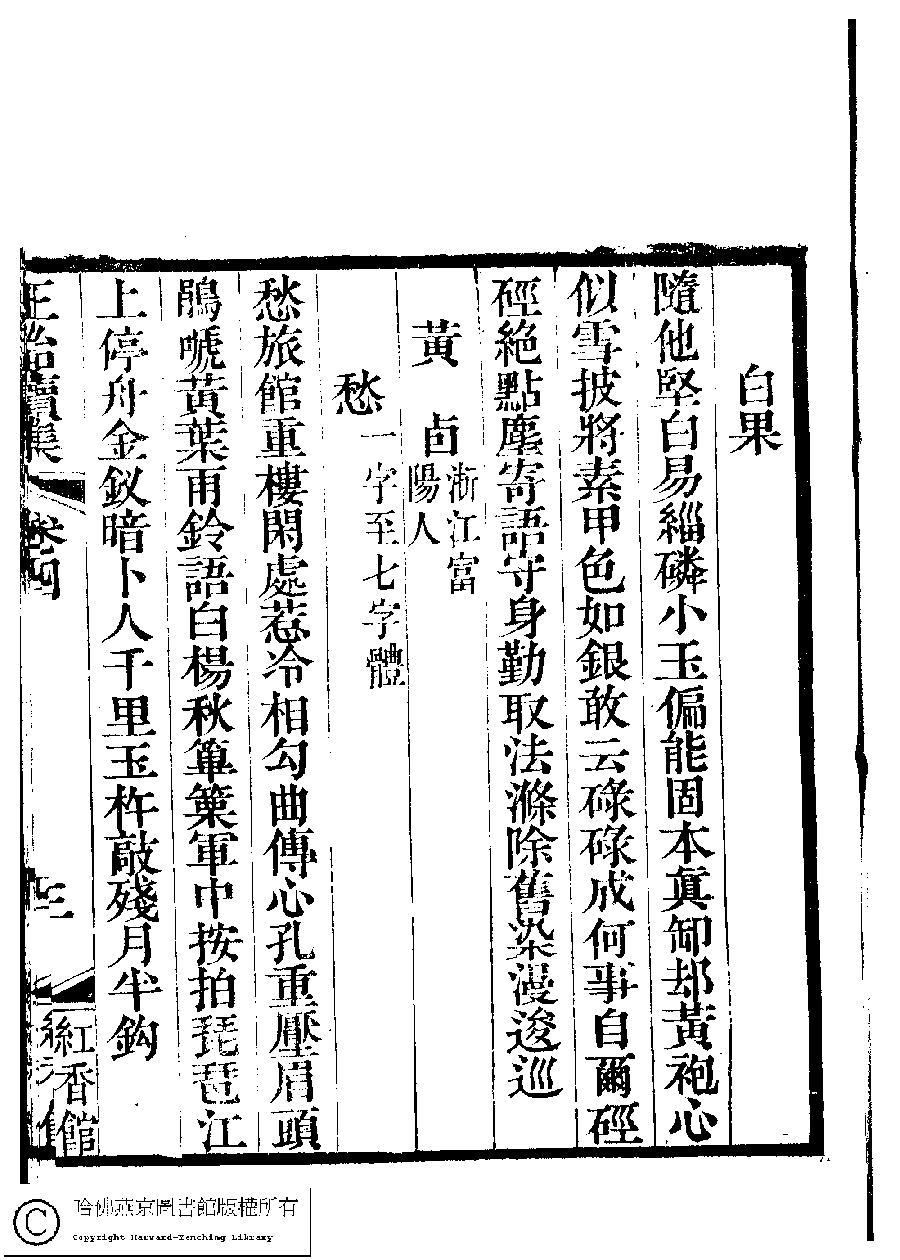 白果
隨他堅白易緇磷小玉偏能固本眞卸却黃袍心
似雪披將素甲色如銀敢云碌碌成何事自爾硜
硜絶點塵寄語守身勤取法滌除舊染漫逡巡
黃卣浙江富
陽人
愁一字至七字體
愁旅館重樓閑處惹冷相勾曲傳心孔重壓眉頭
鵑嗁黃葉雨鈴語白楊秋篳篥軍中按拍琵琶江
上停舟金釵暗卜人千里玉杵敲殘月半鈎
正始續集
卷四
三
紅香館
哈佛燕京圖書館版權所有
Copyright Harvard-Yenching Library